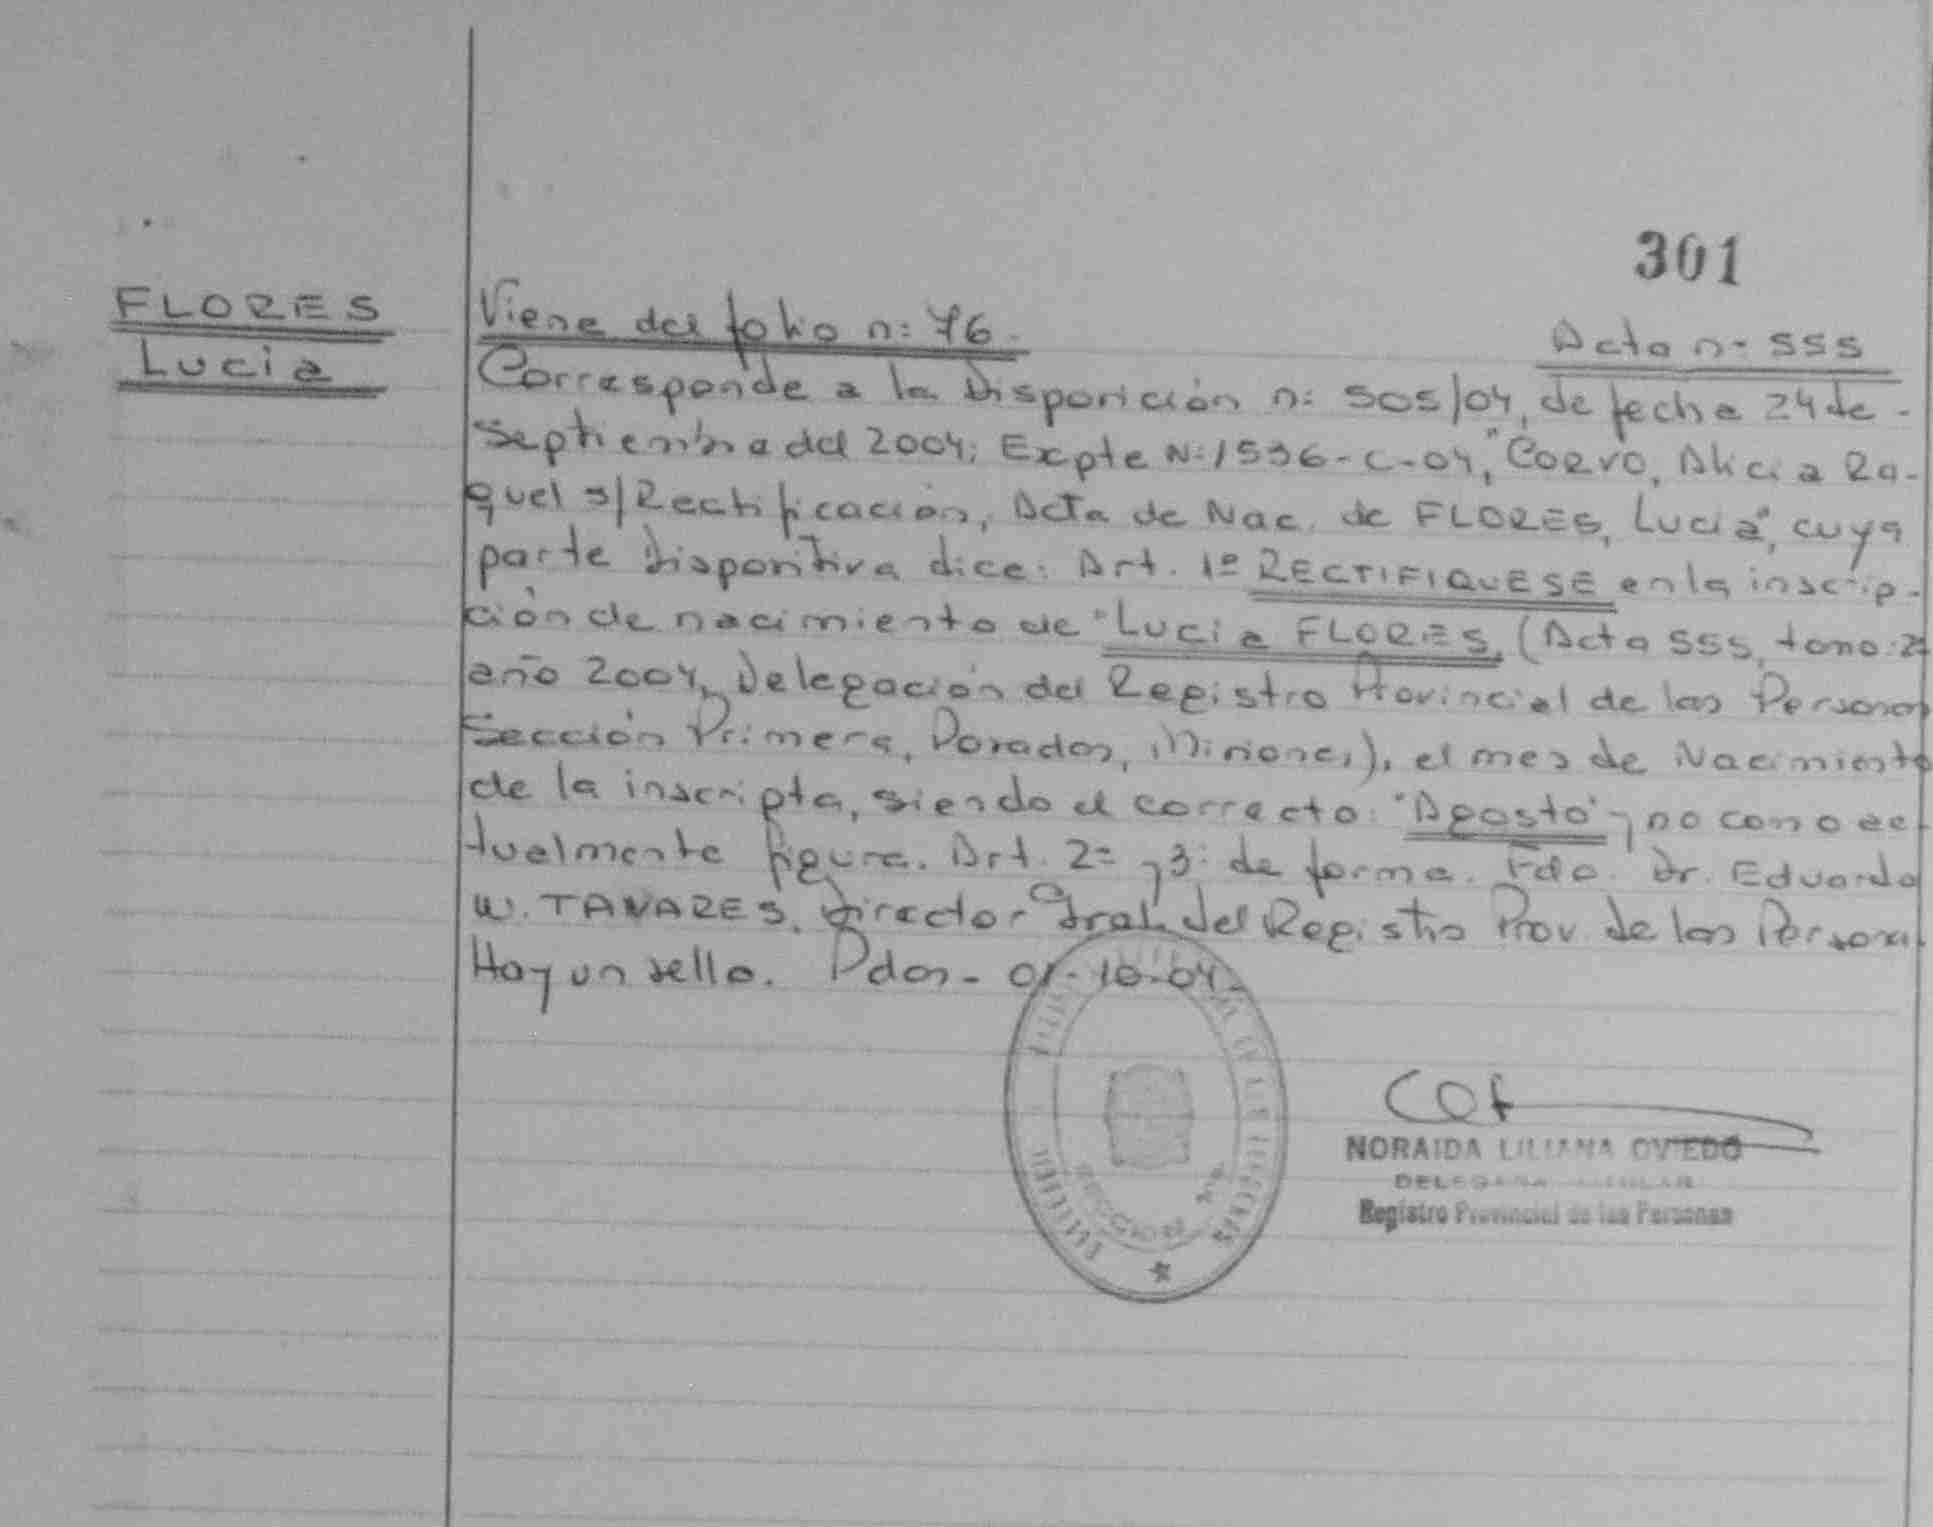 301
FLORES
Lucia
Viene del folio n: 76.
Acta n: 555
Corresponde a la Disposición n: 505/04, de fecha 24 de
Septiembre del 2004; Expte N: 1536-C-04, "CORVO, Alicia Ra-
quel s/Rectificación, Acta de Nac. de FLORES, Lucia", cuya
parte Dispositiva dice: Art. 1º RECTIFIQUESE en la inscrip-
ción de nacimiento de "Lucia FLORES, (Acta 555, tomo: 2
año 2004, Delegación del Registro Provincial de las Personas
Sección Primera, Posadas, Misiones), el mes de Nacimiento
de la inscripta, siendo el correcto: "Agosto" y no como ac-
tualmente figura. Art. 2º y 3º de forma. Fdo. Dr. Eduardo
W. TANARES, Director Gral. del Registro Prov. de las Personas
Hay un sello. Pdas - 01-10-04.
NORAIDA LILIANA OVIEDO
Registro Provincial de las Personas